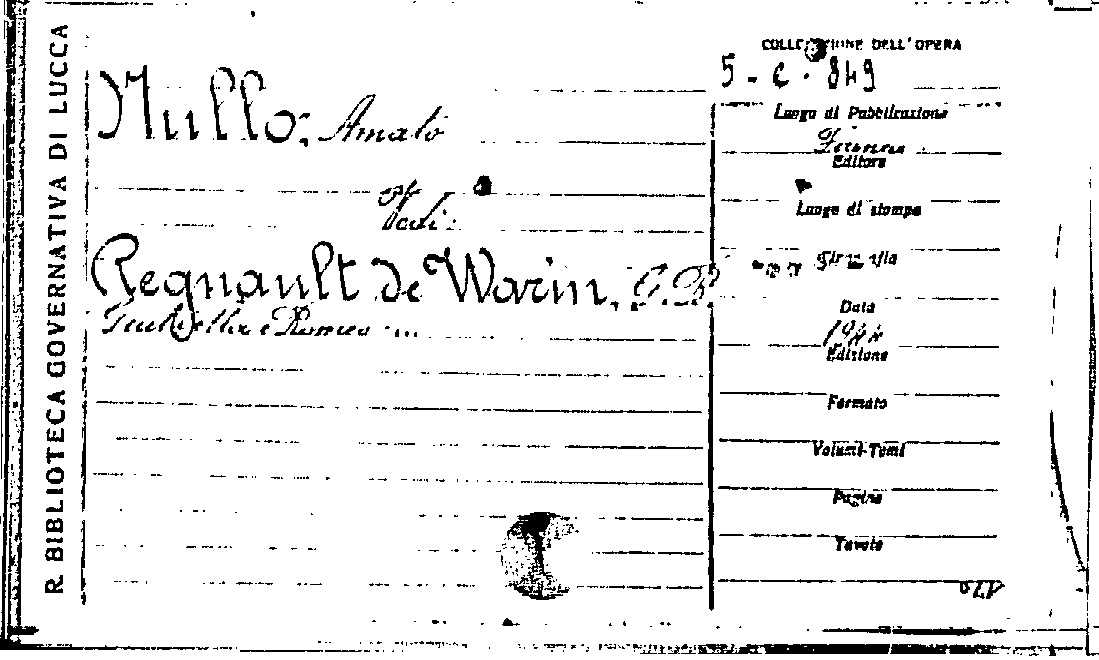 R BIBLIOTECA GOVERNATIVA DI LUCCA
Nullo, Amato
Vedi:
Regnault de Warin, G. B.
Giulietta e Romeo ...
COLLOCAZIONE DELL'OPERA
5 - C. 849
Luogo di Pubblicazione
Firenze
Editore
Luogo di stampa
Tipografia
Data
Edizione
Formato
Volumi-Tomi
Pagine
Tavole